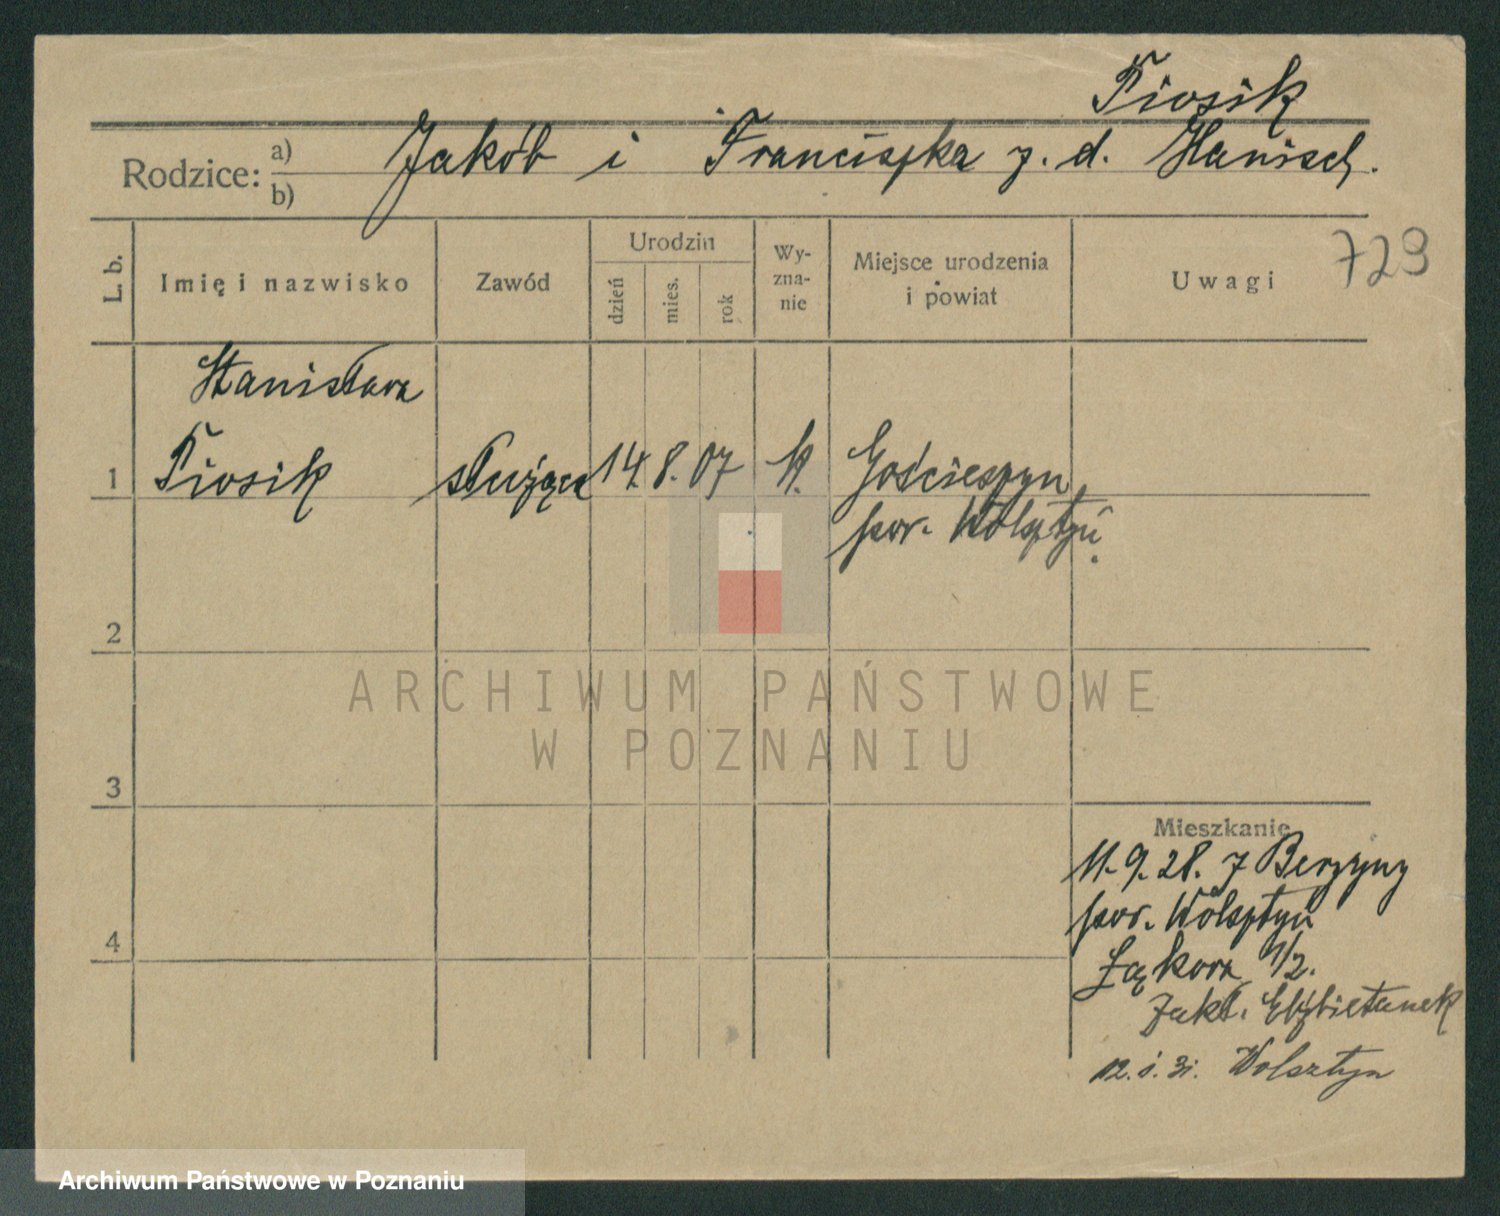 Piosik
Rodzice: a) b) Jakób i Franciszka z. d. Hanisch.
729
L. b.
Imię i nazwisko
Zawód
Urodzin
dzień
mies.
rok
Wy-
zna-
nie
Miejsce urodzenia
i powiat
Uwagi
Stanisława
1 Piosik służąca 14. 8. 07 kt. Gościeszyn
pow. Wolsztyń.
2
ARCHIWUM PAŃSTWOWE
W POZNANIU
3
Mieszkanie
11. 9. 28. z Berzyny
pow. Wolsztyń
4
Łąkowa 1/2.
Zakł. Elżbietanek
12. 1. 31. Wolsztyn
Archiwum Państwowe w Poznaniu